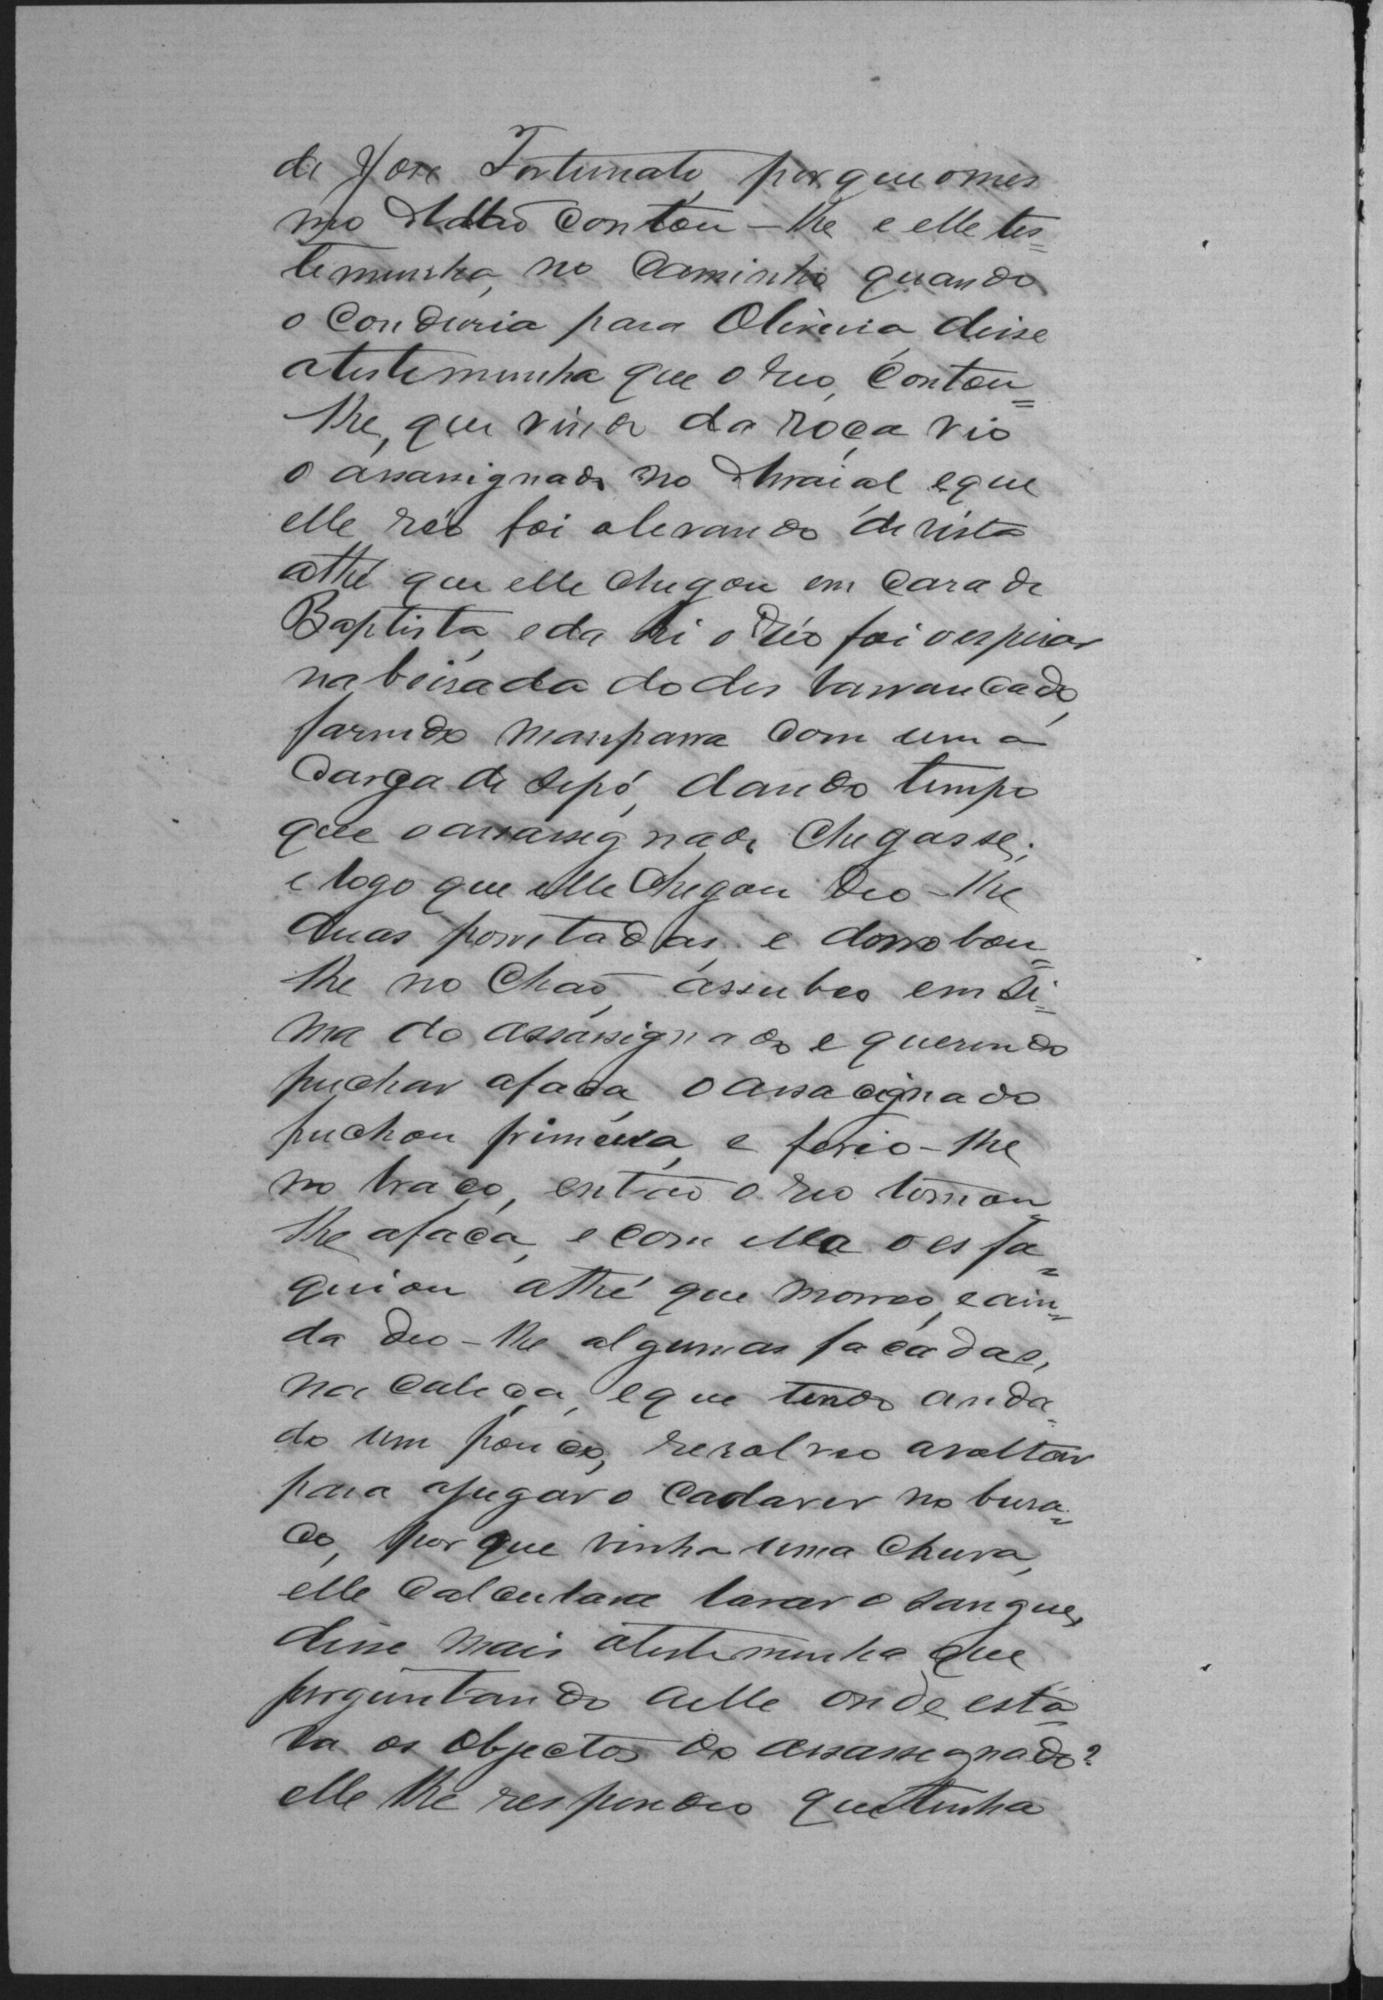 de Jose Fortunato, por que o mes
mo Adão contou-lhe e elle tes=
temunha, no Caminho quando
o Conduzia para Oliveira, disse
atestemunha que o reo, Contou=
lhe, que vindo da roça vio
o assassignado no Arraial eque
elle réo foi olevando de vista
athé que elle chegou em casa de
Baptista, e da hi o réo foi o esperar
na beirada do desbarrancado,
fazendo manparra com uma
Carga de sepó, dando tempo
que o assassignado Chegasse;
e logo que elle Chegou deo-lhe
duas porretadas, e dorrobou=
lhe no Chaõ, assubeo em si=
ma do assassignado e querendo
puchar afaca, o assacignado
puchou primeira, e ferio-lhe
no braço, então o reo tomou=
lhe afaca, e com ella o esfa=
quiou athé que morreo, e ain=
da deo-lhe algumas facadas,
na Cabeça, eque tendo anda=
do um pouco, resolveo avoltar
para apegar o Cadaver no bura=
co, por que vinha uma Chuva,
elle Calculava lavar o sangue,
disse mais atestemunha que
perguntando aelle onde esta=
va os objectos do assassegnado?
elle lhe respondeo que tinha